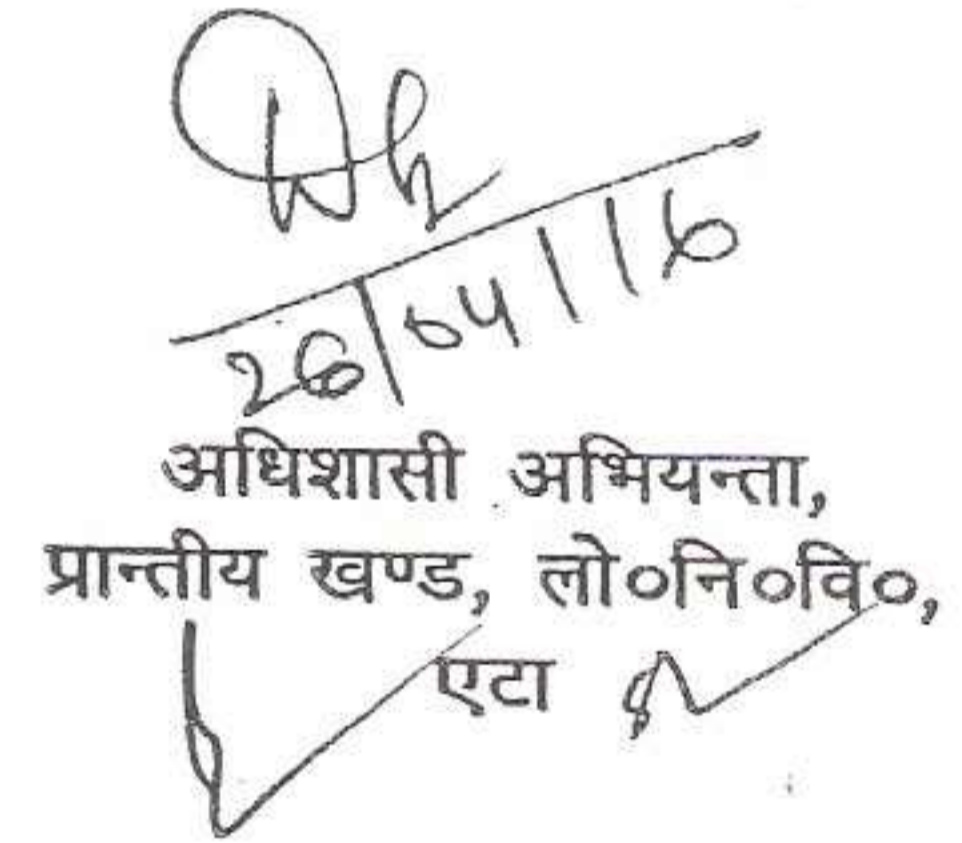 26/04/16
अधिशासी अभियन्ता,
प्रान्तीय खण्ड, लो०नि०वि०,
एटा